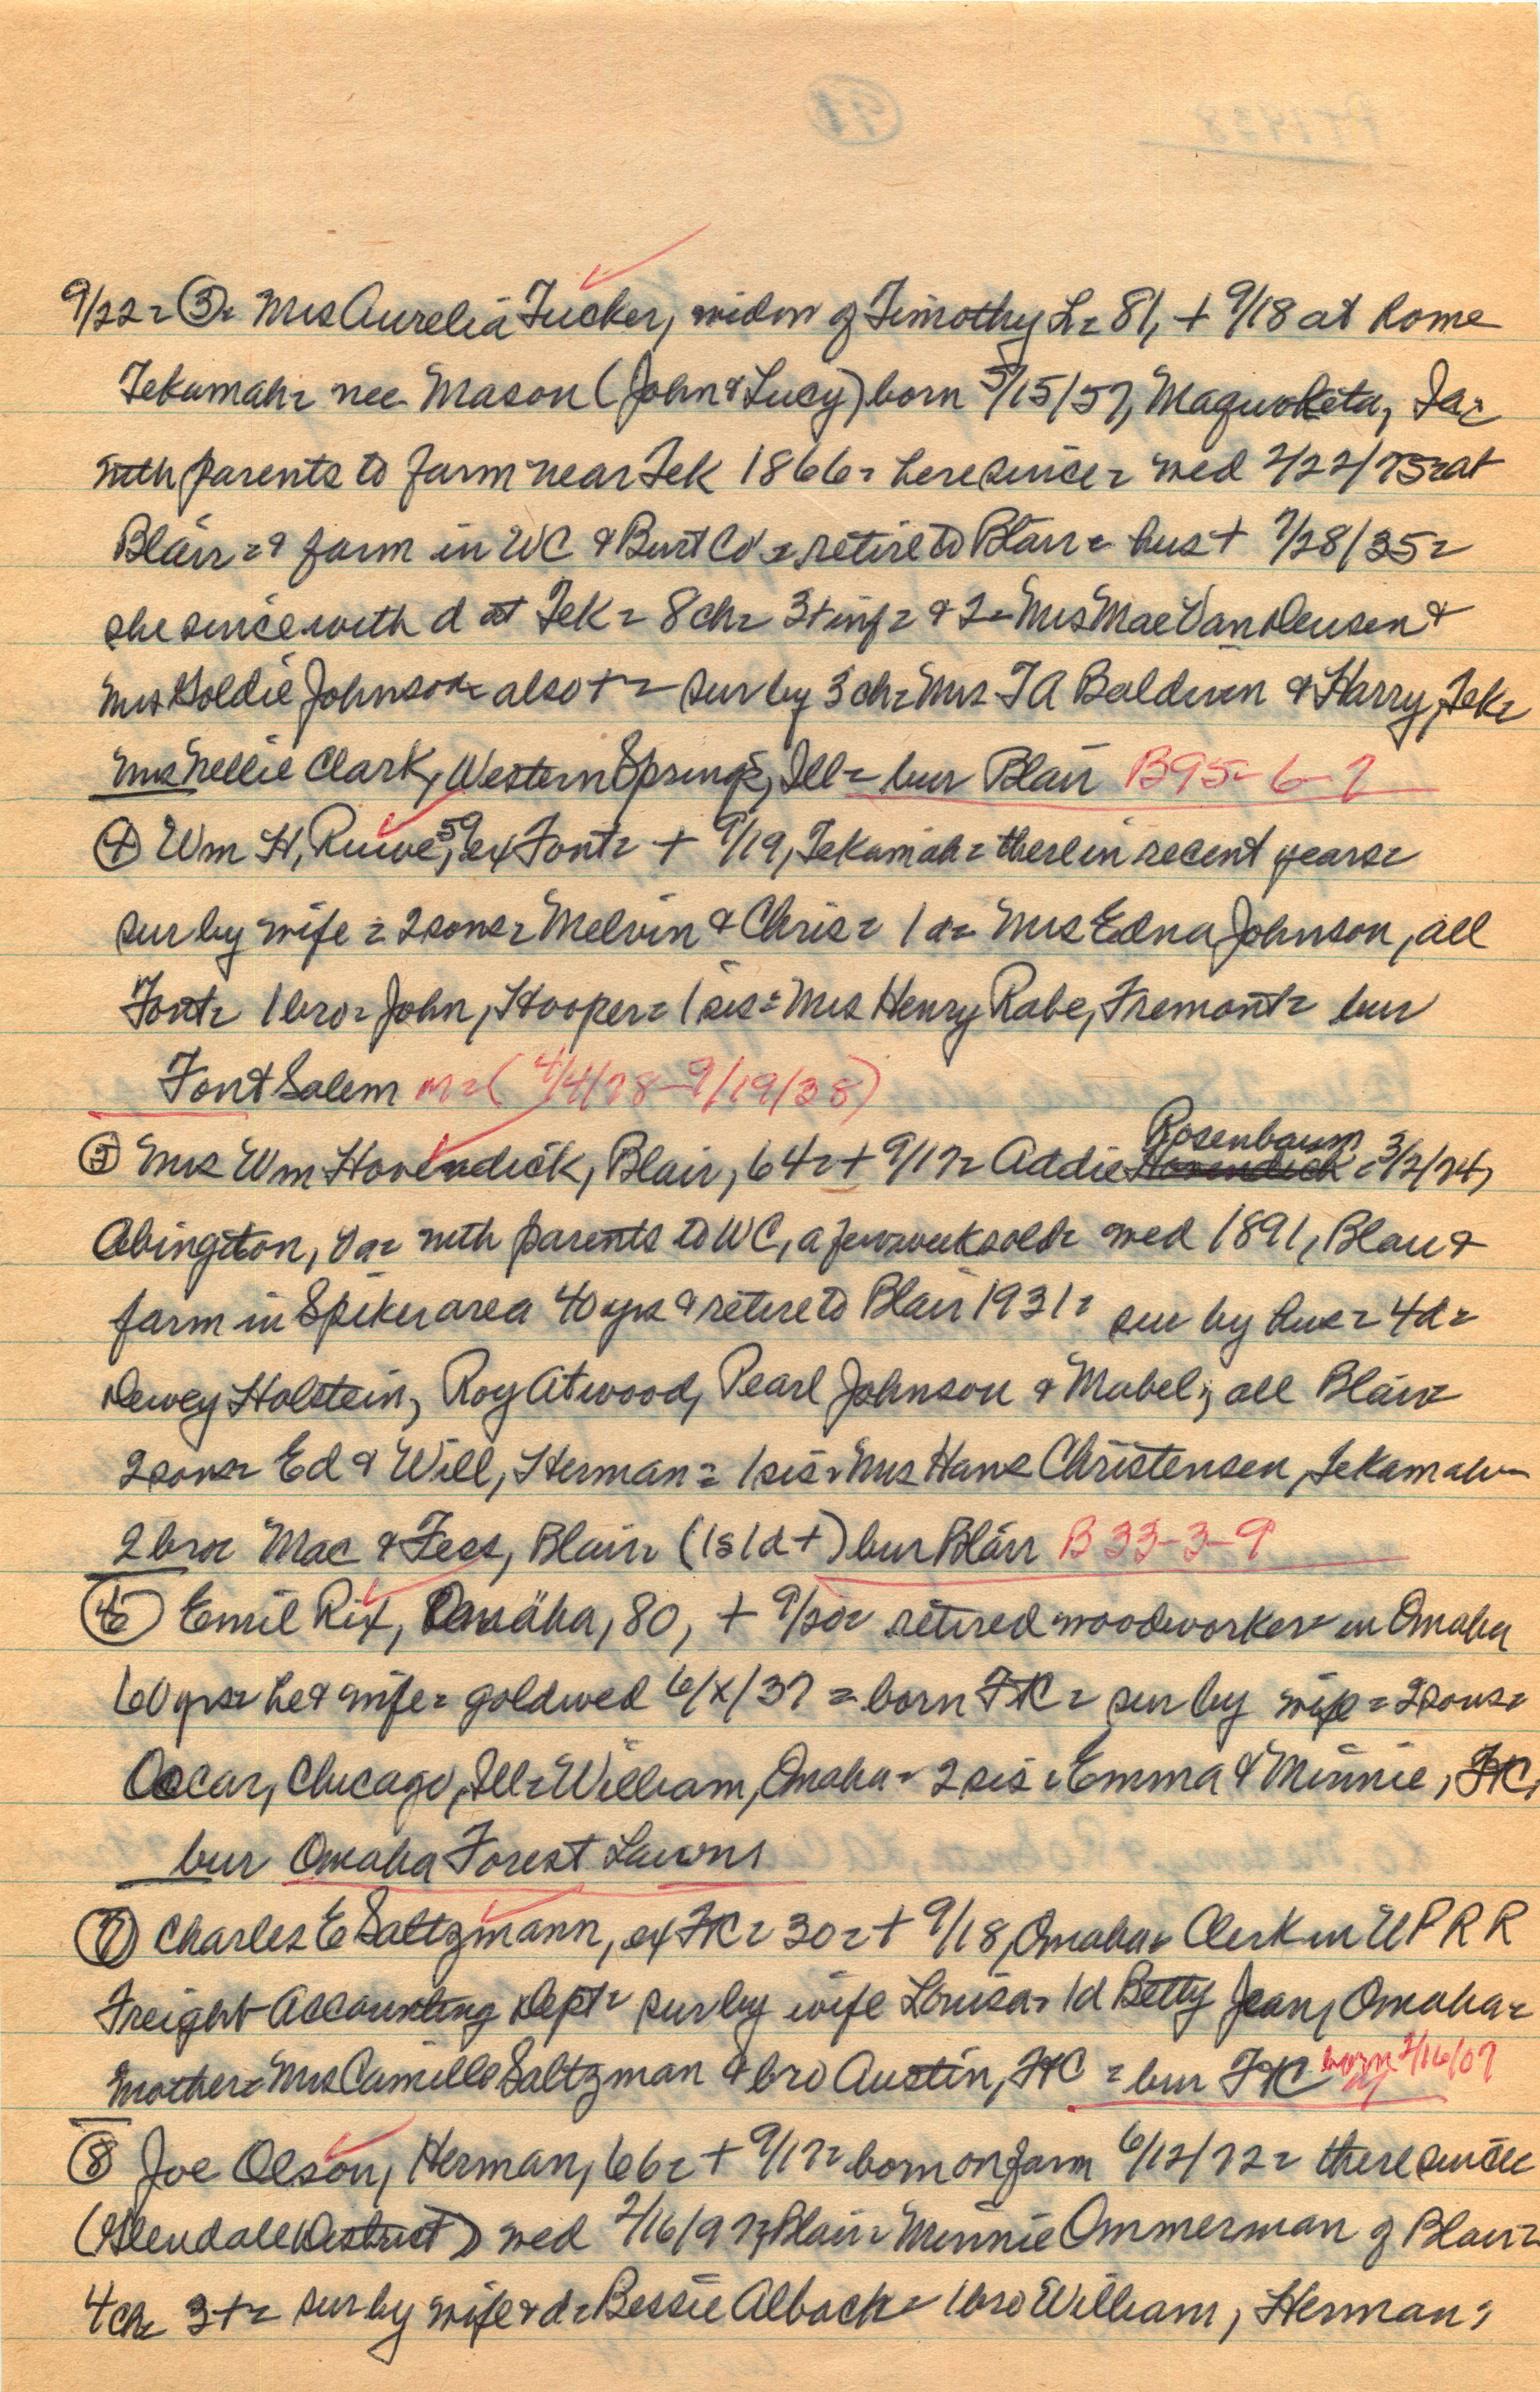 9/22 = ③ = Mrs Aurelia Tucker, widow of Timothy L = 81, + 9/18 at home
Tekamah = nee Mason (John & Lucy) born 5/15/57, Maquoketa, Ia =
with parents to farm near Tek 1866 = here since = wed 2/22/75 = at
Blair = & farm in WC & Burt Co = retire to Blair = hus + 7/28/35 =
she since with d at Tek = 8 ch = 3 + inf = & 2 = Mrs Mae Van Deusen &
Mrs Goldie Johnson = also + = sur by 3 ch = Mrs T A Baldwin & Harry, Tek =
Mrs Nellie Clark, Western Springs, Ill = bur Blair B95-6-7
④ Wm H, Ruwe, 59, ex Font = + 9/19, Tekamah = there in recent years =
sur by wife = 2 sons = Melvin & Chris = 1 d = Mrs Edna Johnson, all
Font = 1 bro = John, Hooper = 1 sis = Mrs Henry Rabe, Fremont = bur
Font Salem m = (4/4/78-9/19/38)
⑤ Mrs Wm Hovendick, Blair, 64 = + 9/17 = Addie Rosenbaum = 3/2/74,
Abington, Va = with parents to WC, a few weeks old = wed 1891, Blair &
farm in Spiker area 40 yrs & retire to Blair 1931 = sur by hus = 4 d =
Dewey Holstein, Roy Atwood, Pearl Johnson & Mabel, all Blair =
2 sons = Ed & Will, Herman = 1 sis = Mrs Hans Christensen, Tekamah =
2 bro = Mac & Fess, Blair = (1 s 1 d +) bur Blair B 33-3-9
⑥ Emil Rix, Omaha, 80, + 9/20 = retired woodworker = in Omaha
60 yrs = he & wife = gold wed 6/x/37 = born FtC = sur by wife = 2 sons =
Oscar, Chicago, Ill = William, Omaha = 2 sis = Emma & Minnie, FtC,
bur Omaha Forest Lawn
⑦ Charles E Saltzmann, ex FtC = 30 = + 9/18, Omaha = Clerk in UPRR
Freight Accounting Dept = sur by wife Louisa = 1 d Betty Jean, Omaha =
mother = Mrs Camille Saltzman & bro Austin, FtC = bur FtC born 2/16/07
⑧ Joe Olson, Herman, 66 = + 9/17 = born on farm 6/12/72 = there since
(Glendale District) wed 2/16/97, Blair = Minnie Ommerman of Blair =
4 ch = 3 + = sur by wife & d = Bessie Alback = 1 bro William, Herman =